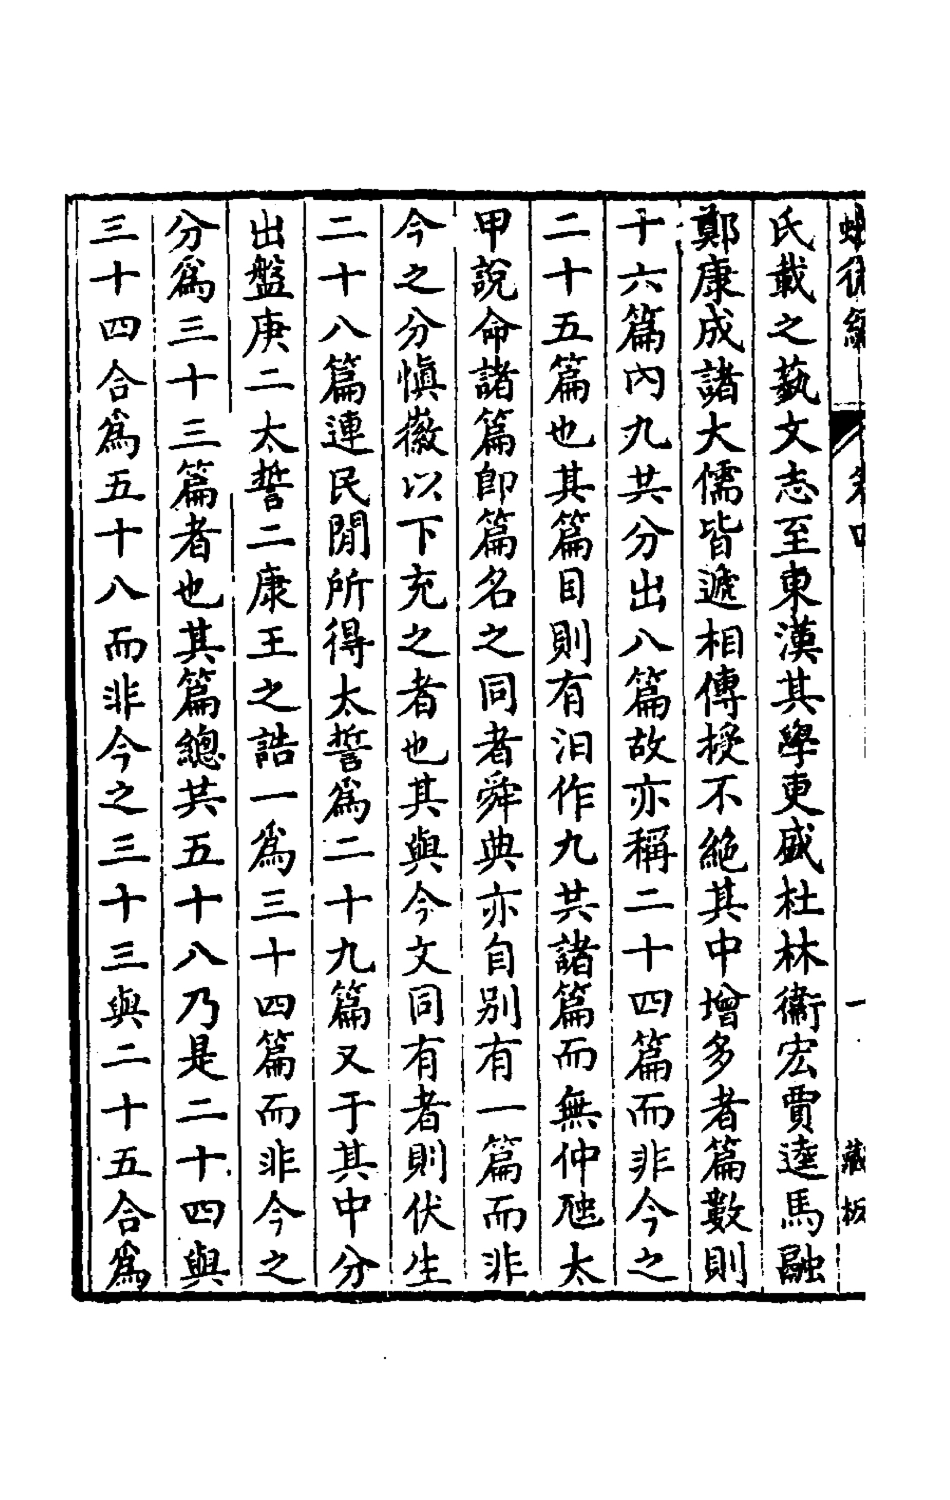 氏載之蓺文志至東漢其學更盛杜林衞宏賈逵馬融
鄭康成諸大儒皆遞相傳授不絕其中增多者篇數則
十六篇內九共分出八篇故亦稱二十四篇而非今之
二十五篇也其篇目則有汨作九共諸篇而無仲虺太
甲說命諸篇卽篇名之同者舜典亦自別有一篇而非
今之分愼徽以下充之者也其與今文同有者則伏生
二十八篇連民閒所得太誓爲二十九篇又于其中分
出盤庚二太誓二康王之誥一爲三十四篇而非今之
分爲三十三篇者也其篇總共五十八乃是二十四與
三十四合爲五十八而非今之三十三與二十五合爲
卷四
一
藏板